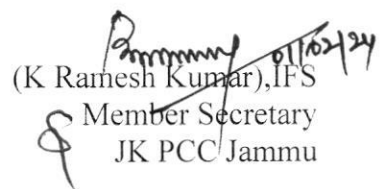 01/02/24
(K Ramesh Kumar),IFS
Member Secretary
JK PCC Jammu